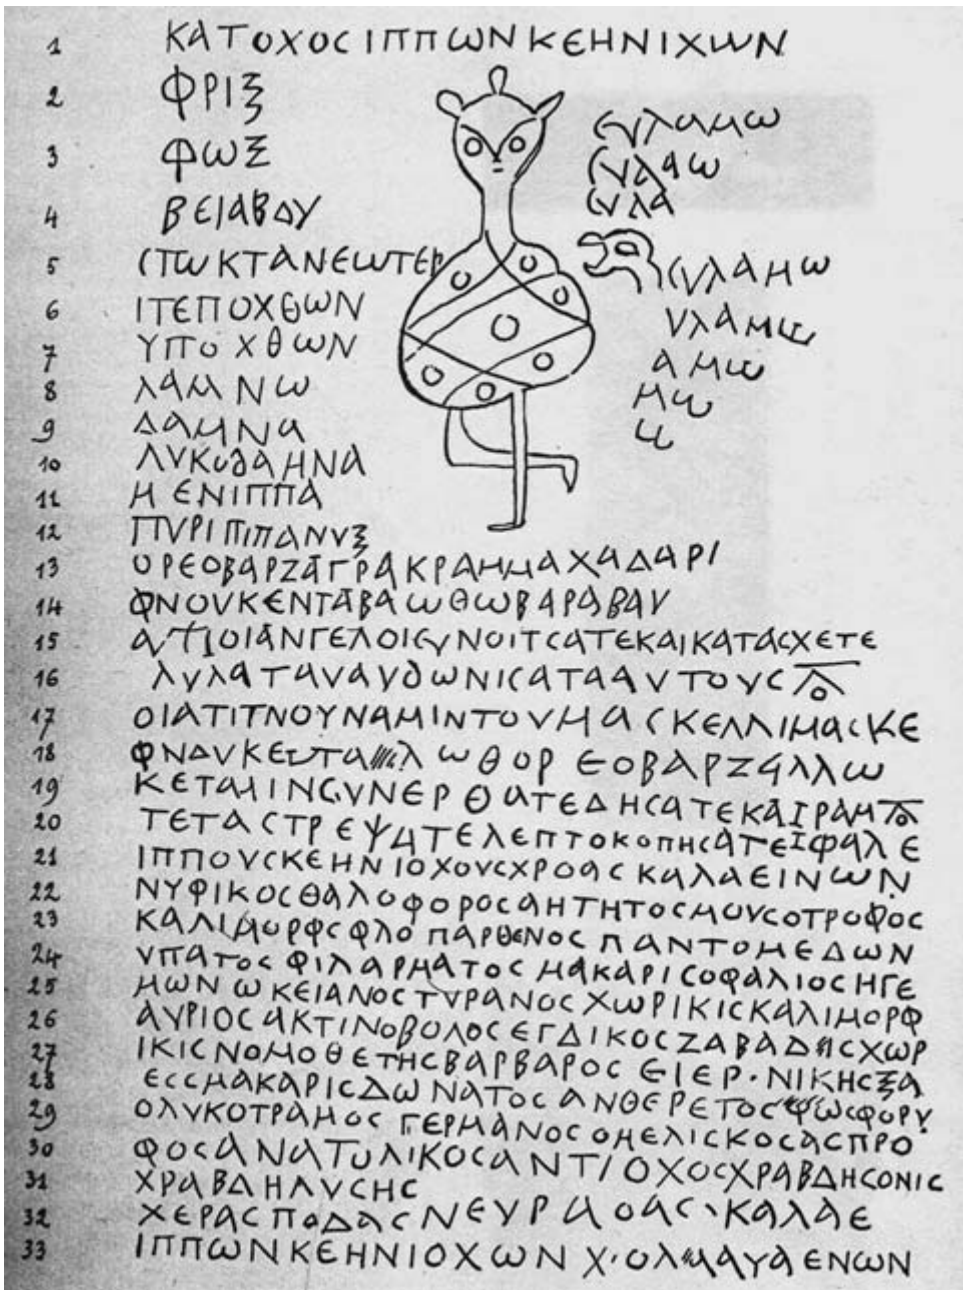 1 ΚΑΤΟΧΟϹΙΠΠΩΝΚΕΗΝΙΧΩΝ
2 ΦΡΙΞ
3 ΦΩΞ
ϹΥΛΑΜΩ
ϹΥΛΑΩ
ϹΥΛΑ
4 ΒΕΙΑΒΔΥ
5 ϹΤΩΚΤΑΝΕΩΤΕΡ
ϹΥΛΑΜΩ
6 ΙΤΕΠΟΧΘΩΝ
ΥΛΑΜΩ
7 ΥΠΟΧΘΩΝ
ΑΜΩ
8 ΛΑΜΝΩ
ΜΩ
9 ΔΑΜΝΑ
Ω
10 ΛΥΚΟΔΑΗΝΑ
11 ΜΕΝΙΠΠΑ
12 ΠΥΡΙΠΙΠΑΝΥΞ
13 ΟΡΕΟΒΑΡΖΑΓΡΑΚΡΑΜΜΑΧΑΔΑΡΙ
14 ΦΝΟΥΚΕΝΤΑΒΑΩΘΩΒΑΡΑΒΑΥ
15 ΟΙΑΝΓΕΛΟΙϹΥΝΟΙΤϹΑΤΕΚΑΙΚΑΤΑϹΧΕΤΕ
16 ΛΥΛΑΤΑΥΑΥΔΩΝΙϹΑΤΑΑΥΤΟΥϹ
17 ΟΙΑΤΙΤΝΟΥΝΑΜΙΝΤΟΥΜΑϹΚΕΛΛΙΜΑϹΚΕ
18 ΦΝΔΥΚΕΝΤΑ ΛΩΘΟΡΕΟΒΑΡΖΑΛΛΩ
19 ΚΕΤΑΜΙΝϹΥΝΕΡΘΑΤΕΔΗϹΑΤΕΚΑΙΡΑΜ
20 ΤΕΤΑϹΤΡΕΨΑΤΕΛΕΠΤΟΚΟΠΗϹΑΤΕΙΦΑΛΕ
21 ΙΠΠΟΥϹΚΕΗΝΙΟΧΟΥϹΧΡΟΑϹΚΑΛΑΕΙΝΩΝ
22 ΝΥΦΙΚΟϹΘΑΛΟΦΟΡΟϹΑΗΤΗΤΟϹΜΟΥϹΟΤΡΟΦΟϹ
23 ΚΑΛΙΜΟΡΦϹΦΛΟΠΑΡΘΕΝΟϹΠΑΝΤΟΜΕΔΩΝ
24 ΥΠΑΤΟϹΦΙΛΑΡΜΑΤΟϹΜΑΚΑΡΙϹΟΦΑΛΙΟϹΗΓΕ
25 ΜΩΝΩΚΕΙΑΝΟϹΤΥΡΑΝΟϹΧΩΡΙΚΙϹΚΑΛΙΜΟΡΦ
26 ΑΥΡΙΟϹΑΚΤΙΝΟΒΟΛΟϹΕΓΔΙΚΟϹΖΑΒΑΔΗϹΧΩΡ
27 ΙΚΙϹΝΟΜΟΘΕΤΗϹΒΑΡΒΑΡΟϹΕΙΕΡ·ΝΙΚΗϹΞΑ
28 ΕϹϹΜΑΚΑΡΙϹΔΩΝΑΤΟϹΑΝΘΕΡΕΤΟϹΦΩϹΦΟΡΥ
29 ΟΛΥΚΟΤΡΑΜΟϹΓΕΡΜΑΝΟϹΟΜΕΛΙϹΚΟϹΑϹΠΡΟ
30 ΦΟϹΑΝΑΤΟΛΙΚΟϹΑΝΤΙΟΧΟϹΧΡΑΒΔΗϹΟΝΙϹ
31 ΧΡΑΒΔΗΛΥϹΗϹ
32 ΧΕΡΑϹΠΟΔΑϹΝΕΥΡΑΟΑϹ·ΚΑΛΑΕ
33 ΙΠΠΩΝΚΕΗΝΙΟΧΩΝ